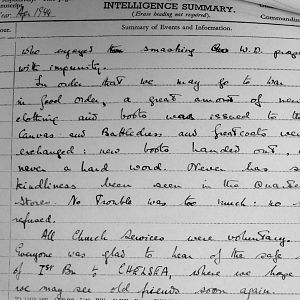 INTELLIGENCE SUMMARY.
(Erase heading not required).
Commandin
Year Apr 1944
Summary of Events and Information.
who enjoyed smashing W.D. prop
with impunity.
In order that we may go to war
in good order, a great amount of new
clothing and boots was issued to the
Canvas and Battledress and Greatcoats were
exchanged: new boots handed out,
never a hard word. Never has s
kindliness been seen in the Quarte
Stores. No Trouble was too much: no
refused.
All Church Services were voluntary.
Everyone was glad to hear of the safe
of 1st Bn to CHELSEA, where we hope
we may see old friends soon again